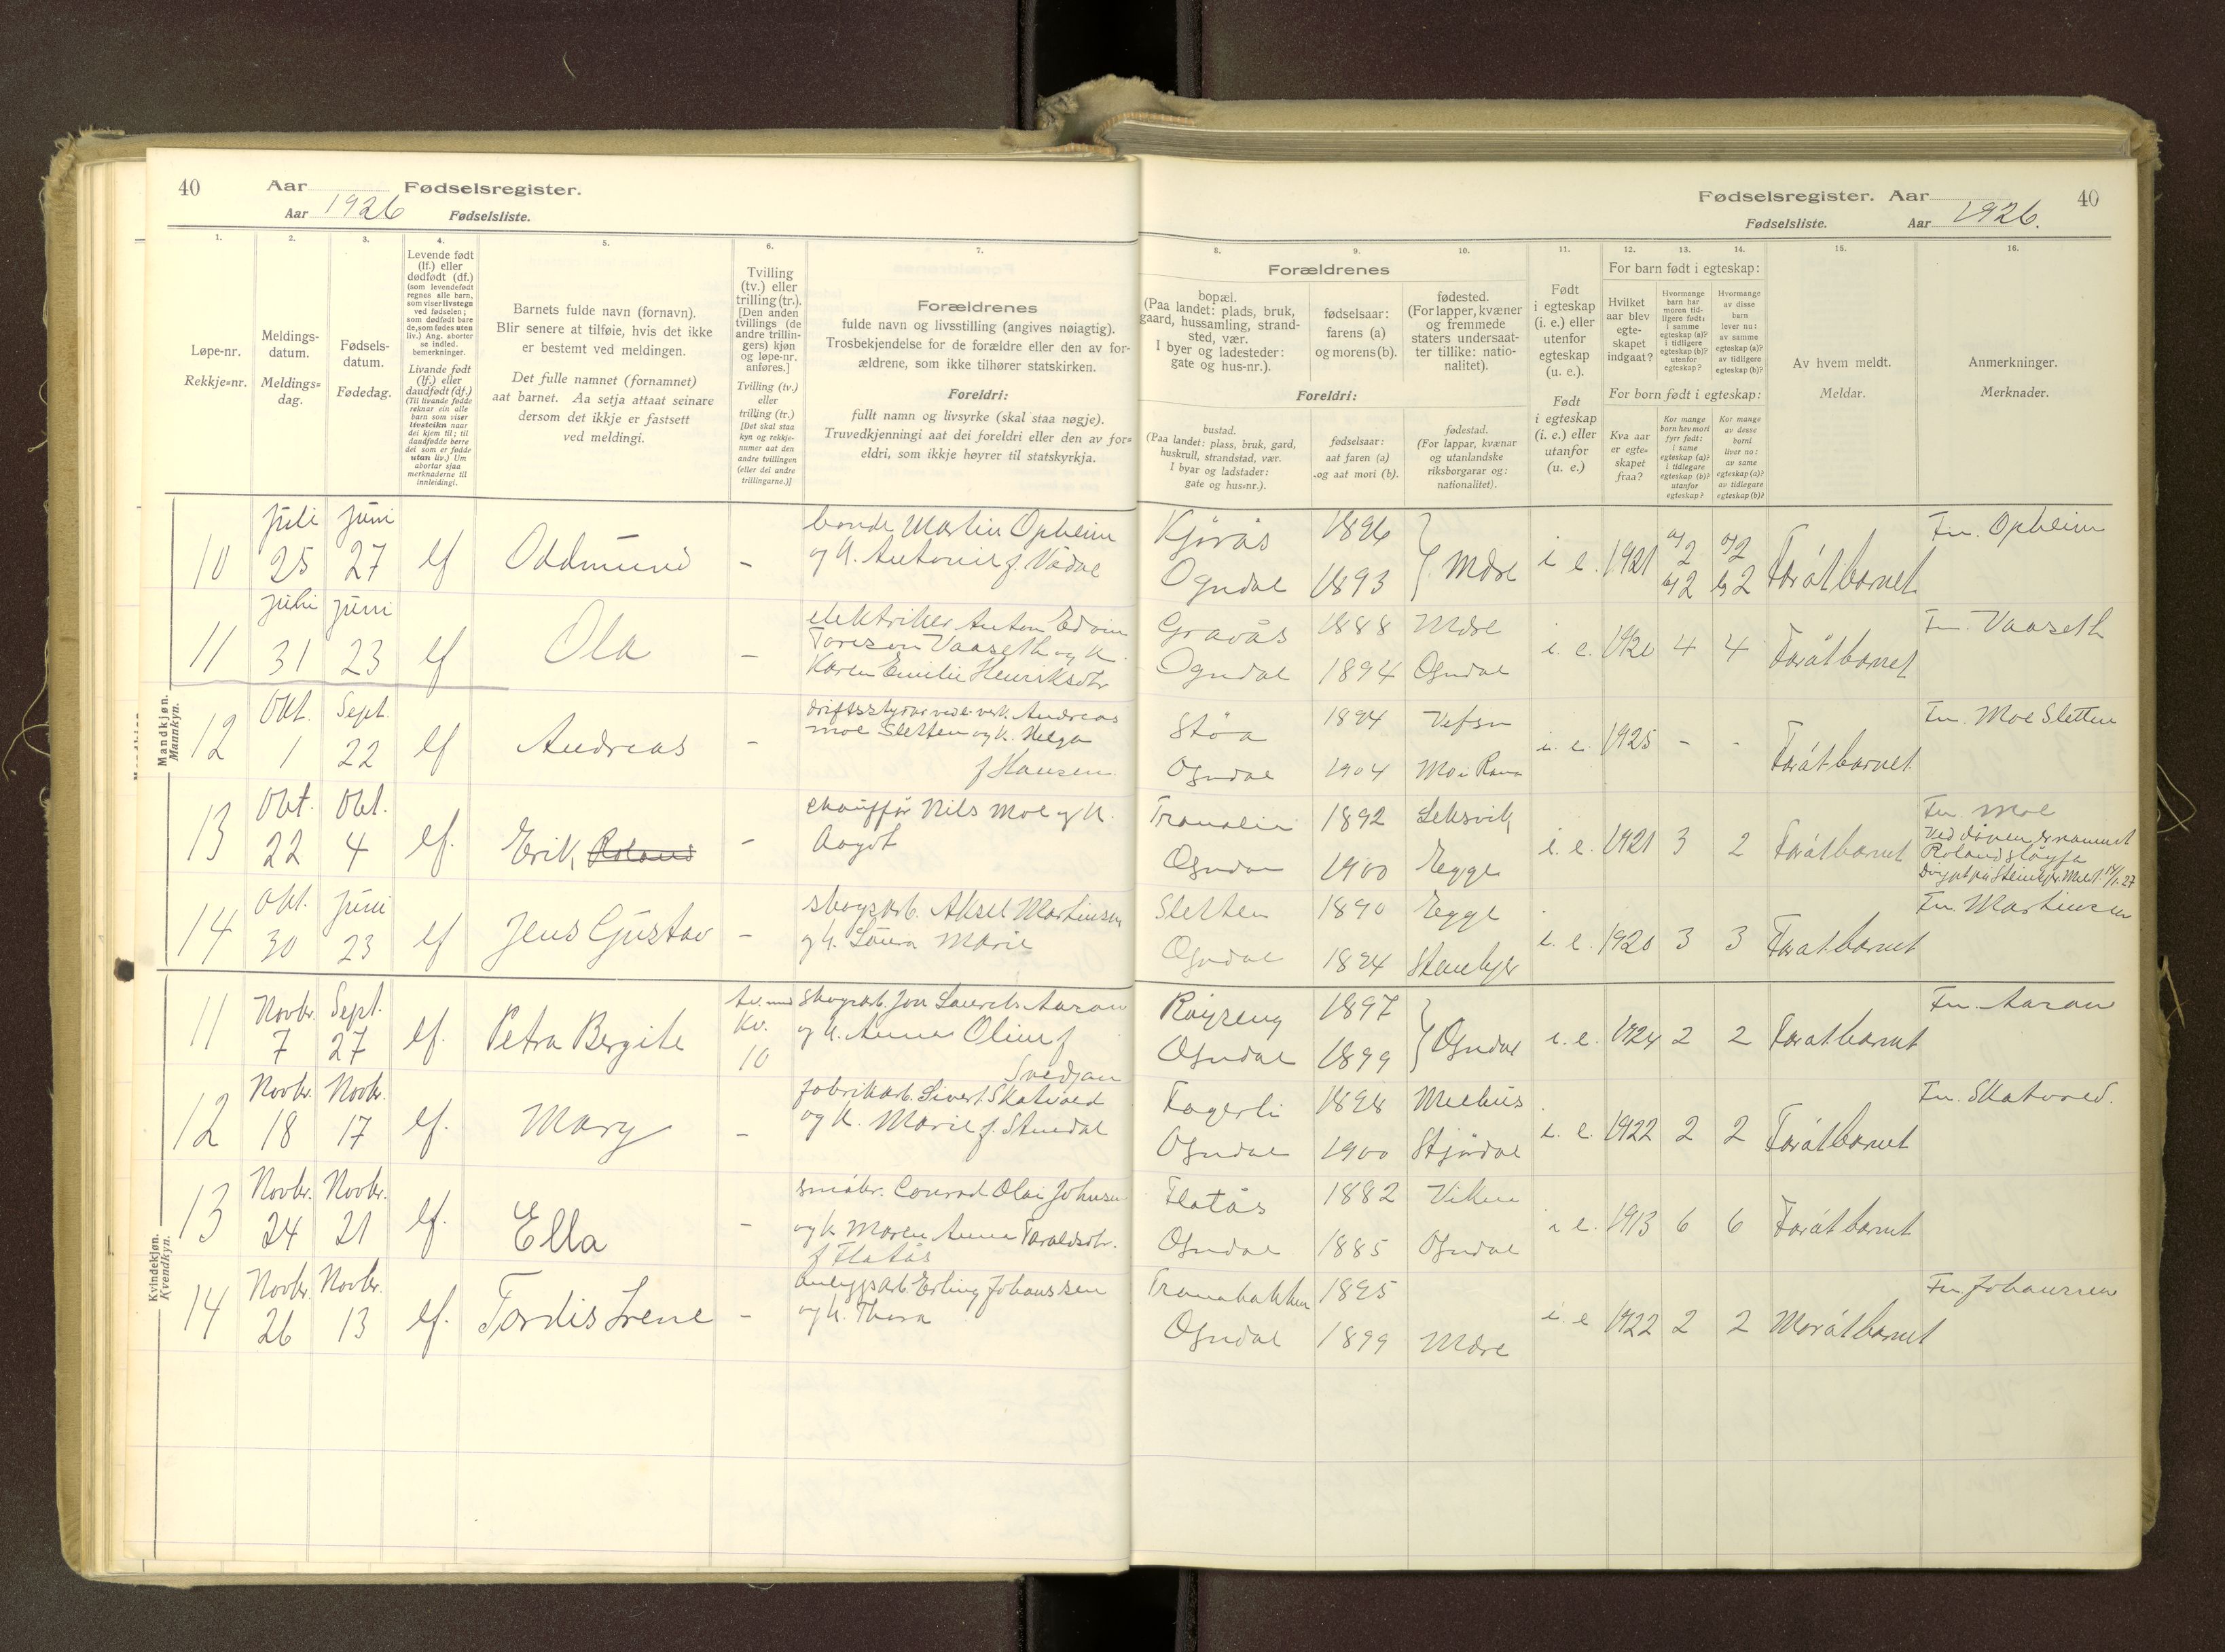 40 Aar Fødselsregister.
Aar 1926 Fødselsliste.
Fødselsregister. Aar 40
Fødselsliste. Aar 1926.
1.
Løpe-nr.
Rekkje=nr.
2.
Meldings-
datum.
Meldings=
dag.
3.
Fødsels-
datum.
Fødedag.
4.
Levende født
(lf.) eller
dødfødt (df.)
(som levendefødt
regnes alle barn,
som viser livstegn
ved fødselen;
som dødfødt bare
de, som fødes uten
liv.) Ang. aborter
se indled.
bemerkninger.
Livande født
(lf.) eller
daudfødt (df.)
(Til livande fødde
reknar ein alle
barn som viser
livsteikn naar
dei kjem til; til
daudfødde berre
dei som er fødde
utan liv.) Um
abortar sjaa
merknaderne til
innleidingi.
5.
Barnets fulde navn (fornavn).
Blir senere at tilføie, hvis det ikke
er bestemt ved meldingen.
Det fulle namnet (fornamnet)
aat barnet. Aa setja attaat seinare
dersom det ikkje er fastsett
ved meldingi.
6.
Tvilling
(tv.) eller
trilling (tr.).
[Den anden
tvillings (de
andre trillin-
gers) kjøn
og løpe-nr.
anføres.]
Tvilling (tv.)
eller
trilling (tr.)
[Det skal staa
kyn og rekkje-
numer aat den
andre tvillingen
(eller dei andre
trillingarne.)]
7.
Forældrenes
fulde navn og livsstilling (angives nøiagtig).
Trosbekjendelse for de forældre eller den av for-
ældrene, som ikke tilhører statskirken.
Foreldri:
fullt namn og livsyrke (skal staa nøgje).
Truvedkjenningi aat dei foreldri eller den av for=
eldri, som ikkje høyrer til statskyrkja.
Forældrenes
8.
bopæl.
(Paa landet: plads, bruk,
gaard, hussamling, strand-
sted, vær.
I byer og ladesteder:
gate og hus-nr.).
9.
fødselsaar:
farens (a)
og morens (b).
10.
fødested.
(For lapper, kvæner
og fremmede
staters undersaat-
ter tillike: natio-
nalitet).
Foreldri:
bustad.
(Paa landet: plass, bruk, gard,
huskrull, strandstad, vær.
I byar og ladstader:
gate og hus=nr.).
fødselsaar:
aat faren (a)
og aat mori (b).
fødestad.
(For lappar, kvænar
og utanlandske
riksborgarar og:
nationalitet).
11.
Født
i egteskap
(i. e.) eller
utenfor
egteskap
(u. e.).
Født
i egteskap
(i. e.) eller
utanfor
(u. e.)
12. 13. 14.
For barn født i egteskap:
Hvilket
aar blev
egte-
skapet
indgaat?
Hvormange
barn har
moren tid-
ligere født:
i samme
egteskap (a)?
i tidligere
egteskap (b)?
utenfor
egteskap?
Hvormange
av disse
barn
lever nu:
av samme
egteskap (a)?
av tidligere
egteskap (b)?
For born født i egteskap:
Kva aar
er egte=
skapet
fraa?
Kor mange
born hev mori
fyrr født:
i same
egteskap (a)?
i tidlegare
egteskap (b)?
utanfor
egteskap?
Kor mange
av desse
borni
liver no:
av same
egteskap (a)?
av tidlegare
egteskap (b)?
15.
Av hvem meldt.
Meldar.
16.
Anmerkninger.
Merknader.
Mandkjøn.
Mannkyn.
10 Juli 25 Juni 27 lf Oddmund - bonde Martin Opheim
og k. Antonie f. Vådal
Kjørås 1896
Ogndal 1893 } Mære i e. 1921 a/2 b/2 a/2 b/2 Far åt barnet Fn. Opheim
11 Juli 31 Juni 23 lf Ola - elektriker Anton Edvin
Toresen Vaaseth og k.
Karen Emilie Henriksdtr
Gravås 1888 Mære
Ogndal 1894 Ogndal i. e. 1920 4 4 Far åt barnet Fn. Vaaseth
12 Okt. 1 Sept. 22 lf Andreas - Andreas
Moe Sletten og k. Helga
f Hansen
Støa 1894 Vefsn
Ogndal 1904 Mo i Rana i. e. 1925 - - Far åt barnet Fn. Moe Sletten
13 Okt. 22 Okt. 4 lf. Erik, Roland - chauffør Nils Moe og k.
Aagot
Tranalia 1892 Leksvik
Ogndal 1900 Egge i. e. 1921 3 2 Far åt barnet Fn. Moe
Ved dåpen er namnet
Roland sløyfa
14 Okt. 30 Juni 23 lf Jens Gustav - skogsarb. Aksel Martinsen
og k. Laura Marie
Sletten 1890 Egge
Ogndal 1894 Steinkjer i. e. 1920 3 3 Far åt barnet Fn. Martinsen
Kvindekjøn.
Kvendkyn.
11 Novbr. 7 Sept. 27 lf. Petra Bergite tv. med
kv.
10 skogsarb. Jon Laurits Aaran
og k. Anna Oline f
Svedjan
Røyseng 1897
Ogndal 1899 } Ogndal i. e. 1924 2 2 Far åt barnet Fn. Aaran
12 Novbr. 18 Novbr. 17 lf. Mary - fabrikarb. Sivert Skatvold
og k. Marie f. Stendal
Fagerli 1898 Meehus
Ogndal 1900 Stjørdal i. e. 1922 2 2 Far åt barnet Fn. Skatvold.
13 Novbr. 24 Novbr. 21 lf. Ella - småbr. Conrad Olai Johnsen
og k Maren Anna Taraldsdtr.
f Flatås
Flatås 1882 Viken
Ogndal 1885 Ogndal i e. 1913 6 6 Far åt barnet
14 Novbr. 26 Novbr. 13 lf. Tordis Irene - anleggsarb. Erling Johanssen
og k. Thora
Tranabakken 1895
Ogndal 1899 Mære i. e 1922 2 2 Mor åt barnet Fn Johanssen